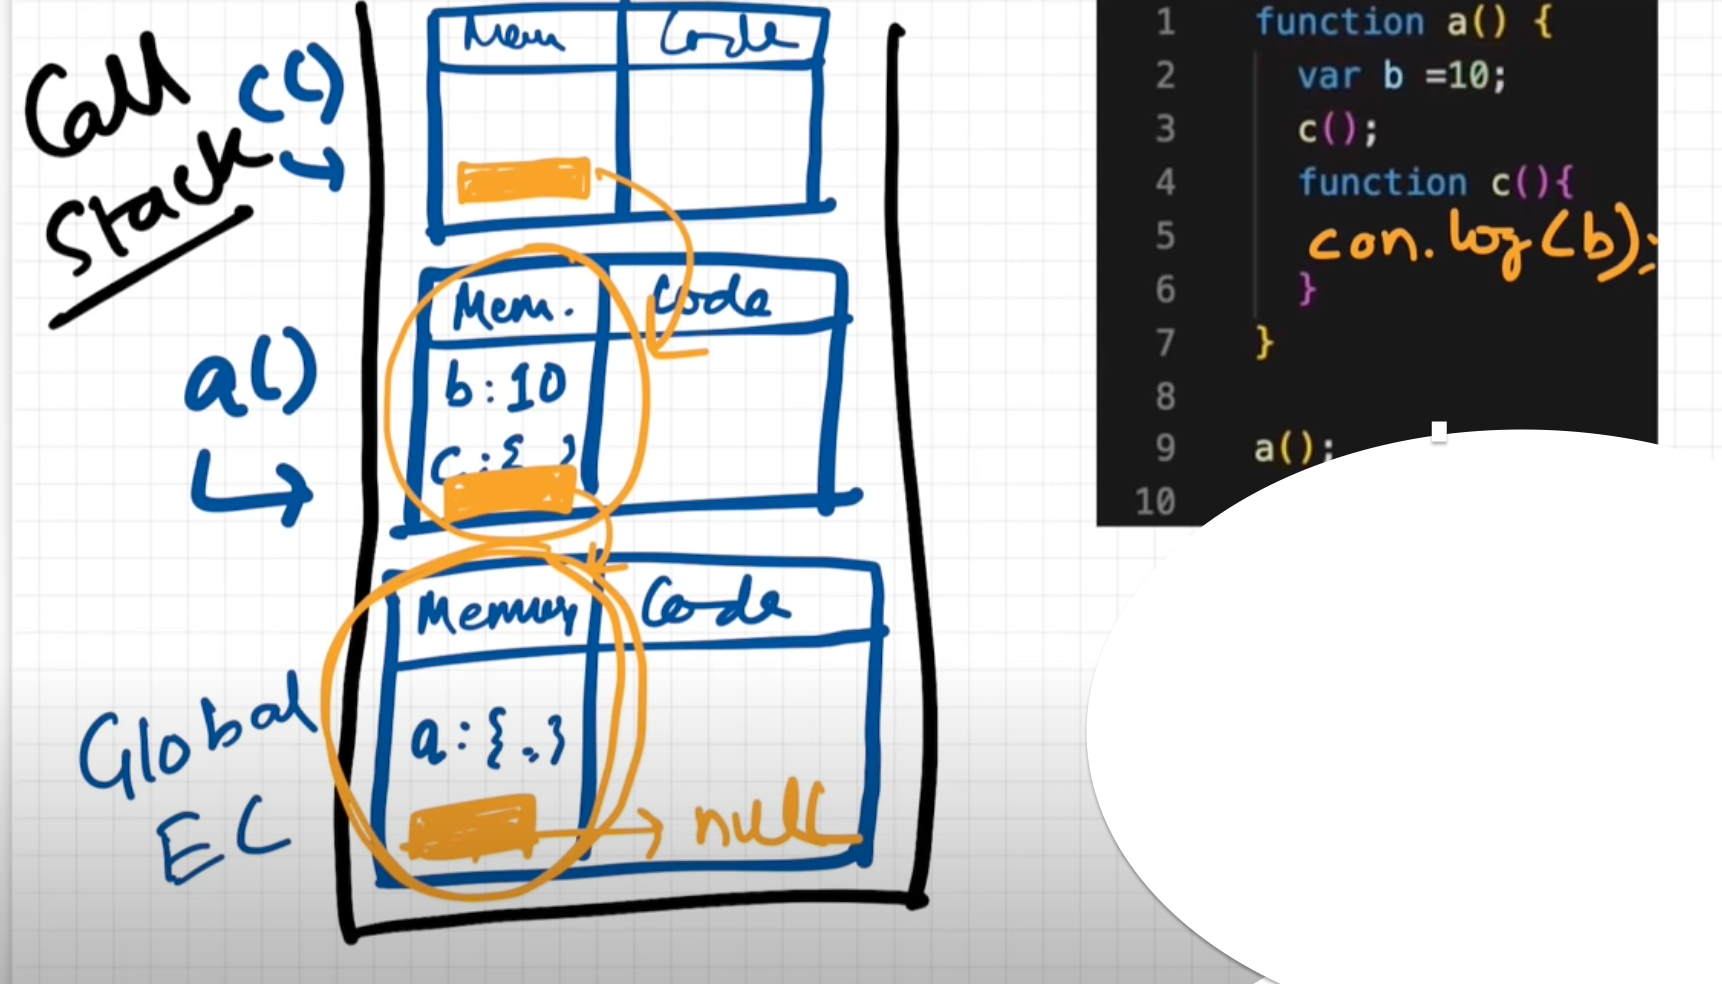 Call
Stack
c()
Mem Code
a()
Mem. Code
b:10
c:{ }
Global
EC
Memory Code
a:{..}
null
1 function a() {
2 var b =10;
3 c();
4 function c(){
5 con.log(b);
6 }
7 }
8
9 a();
10